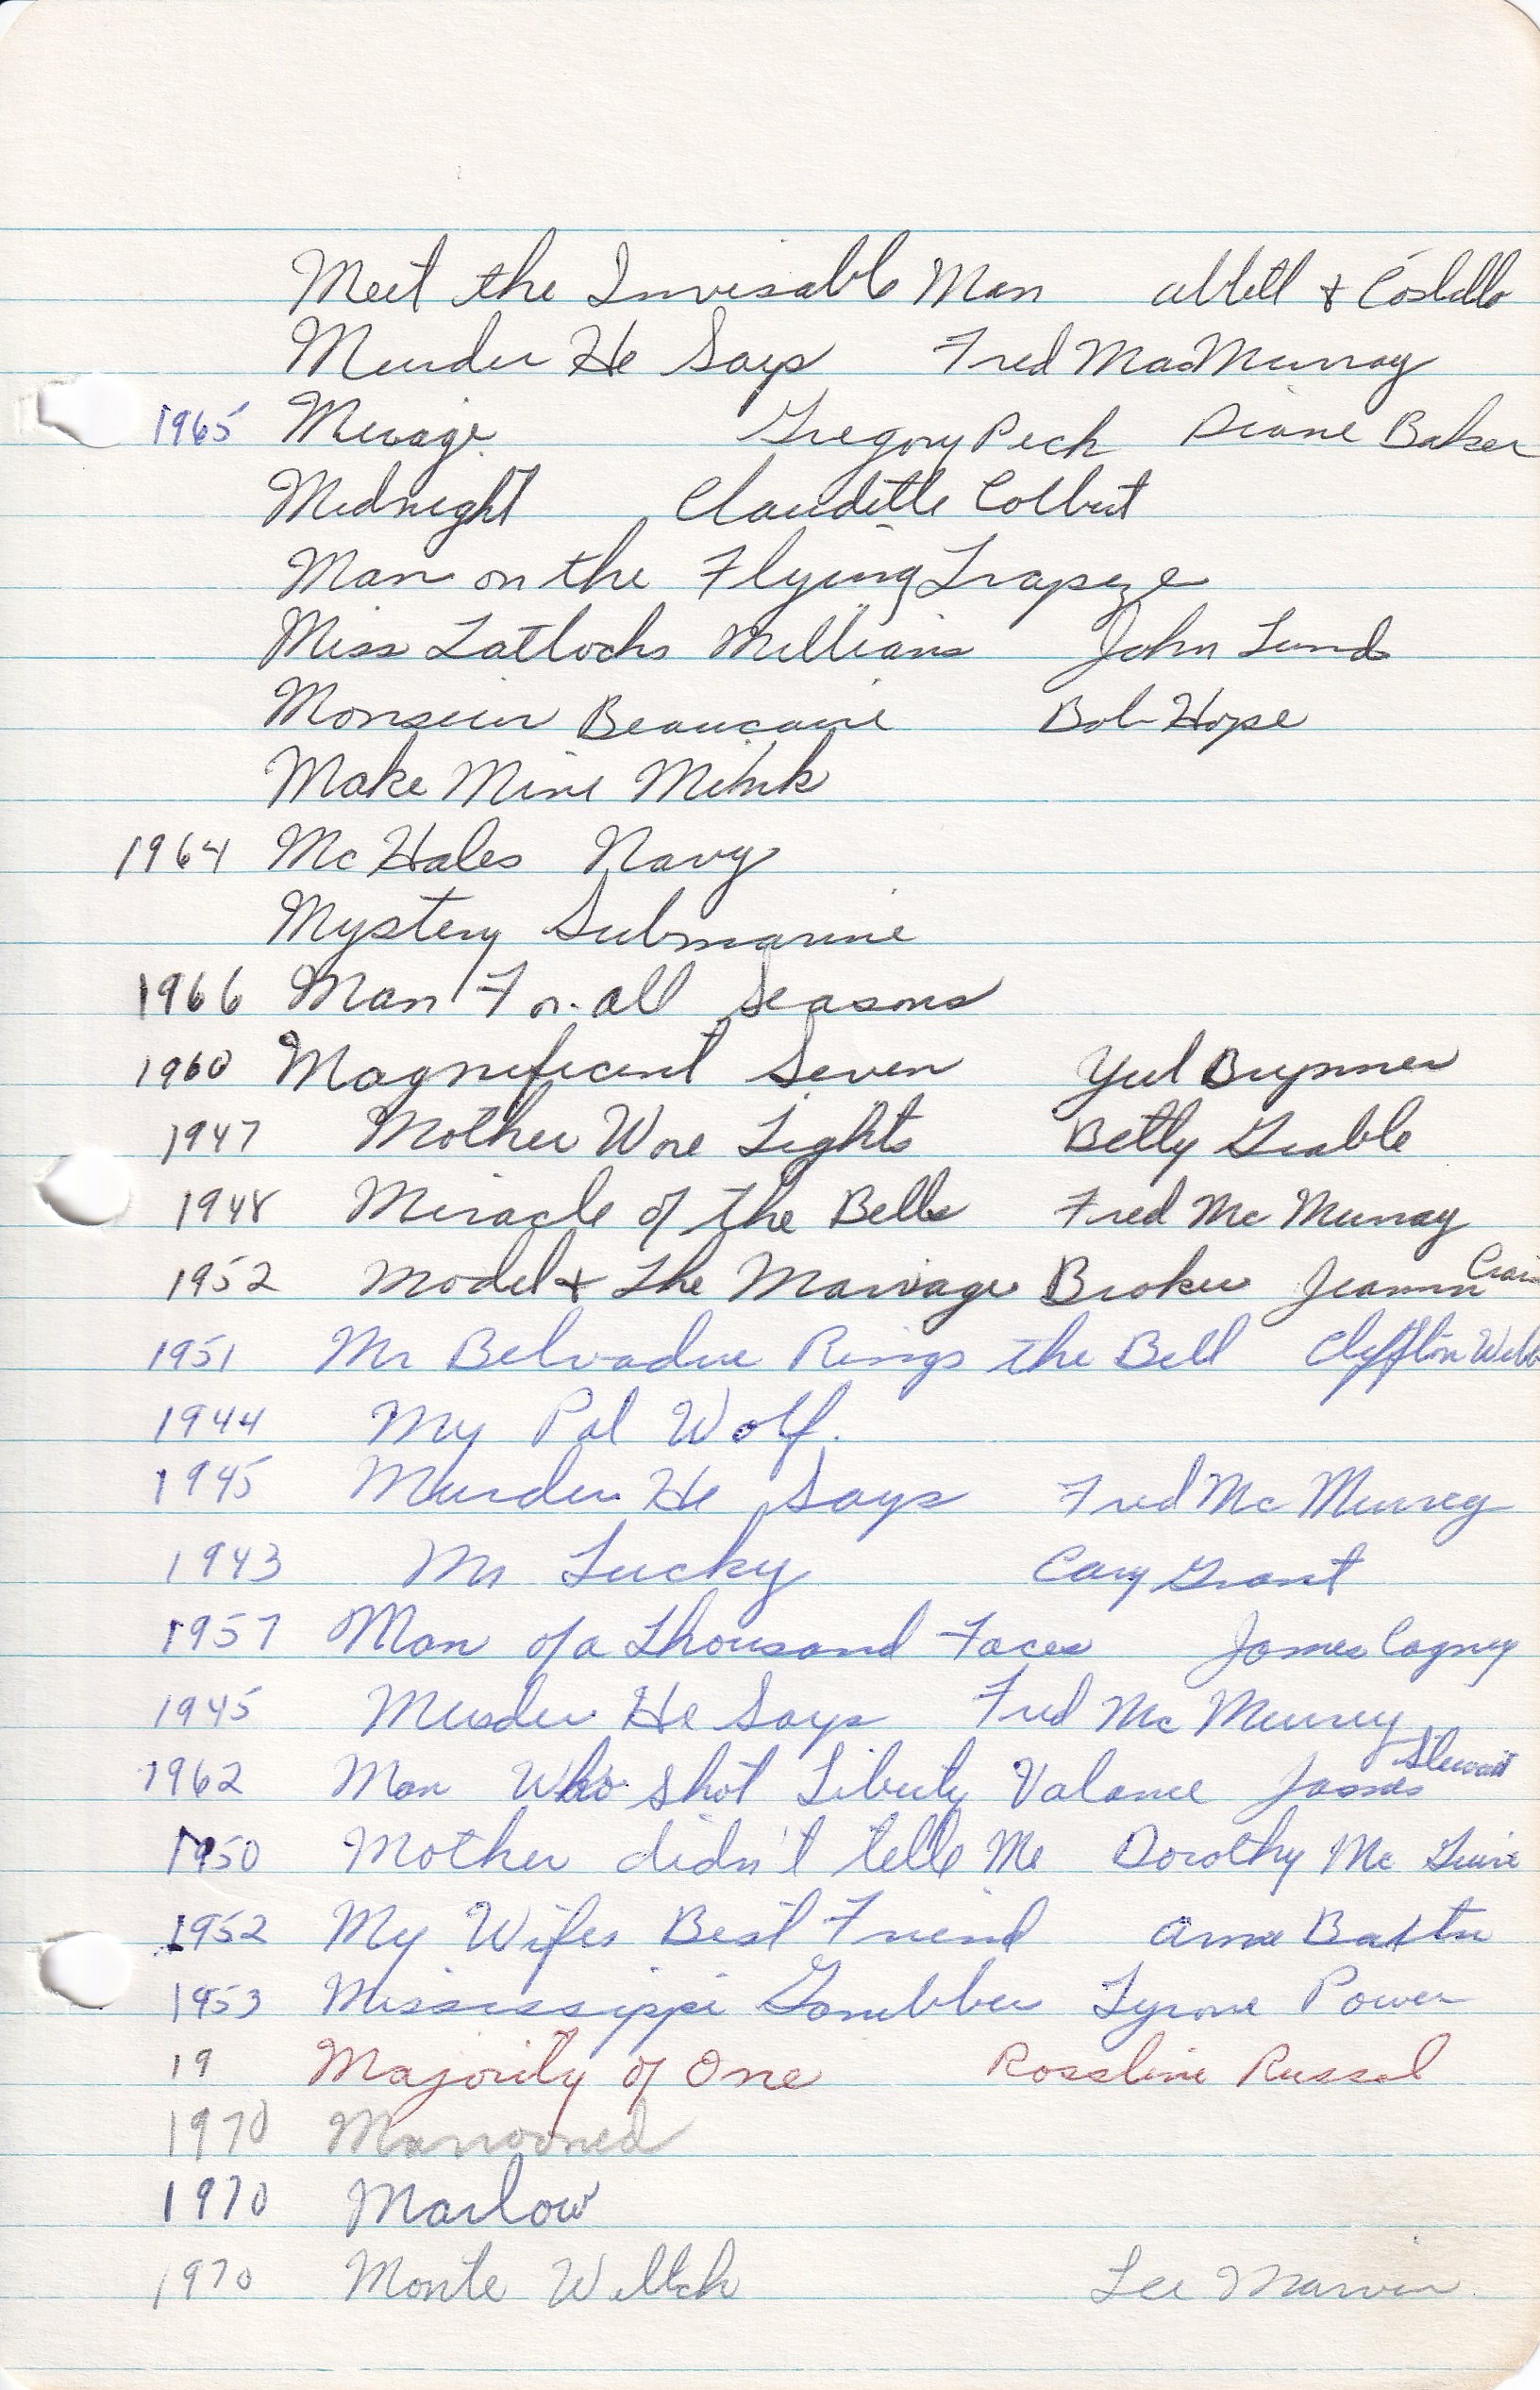 Meet the Invisable Man Abbott & Costello
Murder He Says Fred MacMurray
1965 Mirage Gregory Peck Diane Baker
Midnight Claudette Colbert
Man on the Flying Trapeze
Miss Tatlocks Millians John Lund
Monsieur Beaucaire Bob Hope
Make Mine Mink
1964 McHales Navy
Mystery Submarine
1966 Man For all Seasons
1960 Magnificent Seven Yul Brynner
1947 Mother Wore Tights Betty Grable
1948 Miracle of the Bells Fred McMurray
1952 Model & The Marriage Broker Jeanne Crain
1951 Mr Belvadere Rings the Bell Cliffton Webb
1944 My Pal Wolf.
1945 Murder He Says Fred McMurrey
1943 Mr Lucky Cary Grant
1957 Man of a Thousand Faces James Cagney
1945 Murder He Says Fred McMurrey
1962 Man Who shot Liberty Valance James Stewart
1950 Mother didn't tell Me Dorothy McGuire
1952 My Wifes Best Friend Anne Baxter
1953 Mississippi Gambler Tyrone Power
19 Majority of One Rosaline Russel
1970 Marrooned
1970 Marlow
1970 Monte Lee Marvin